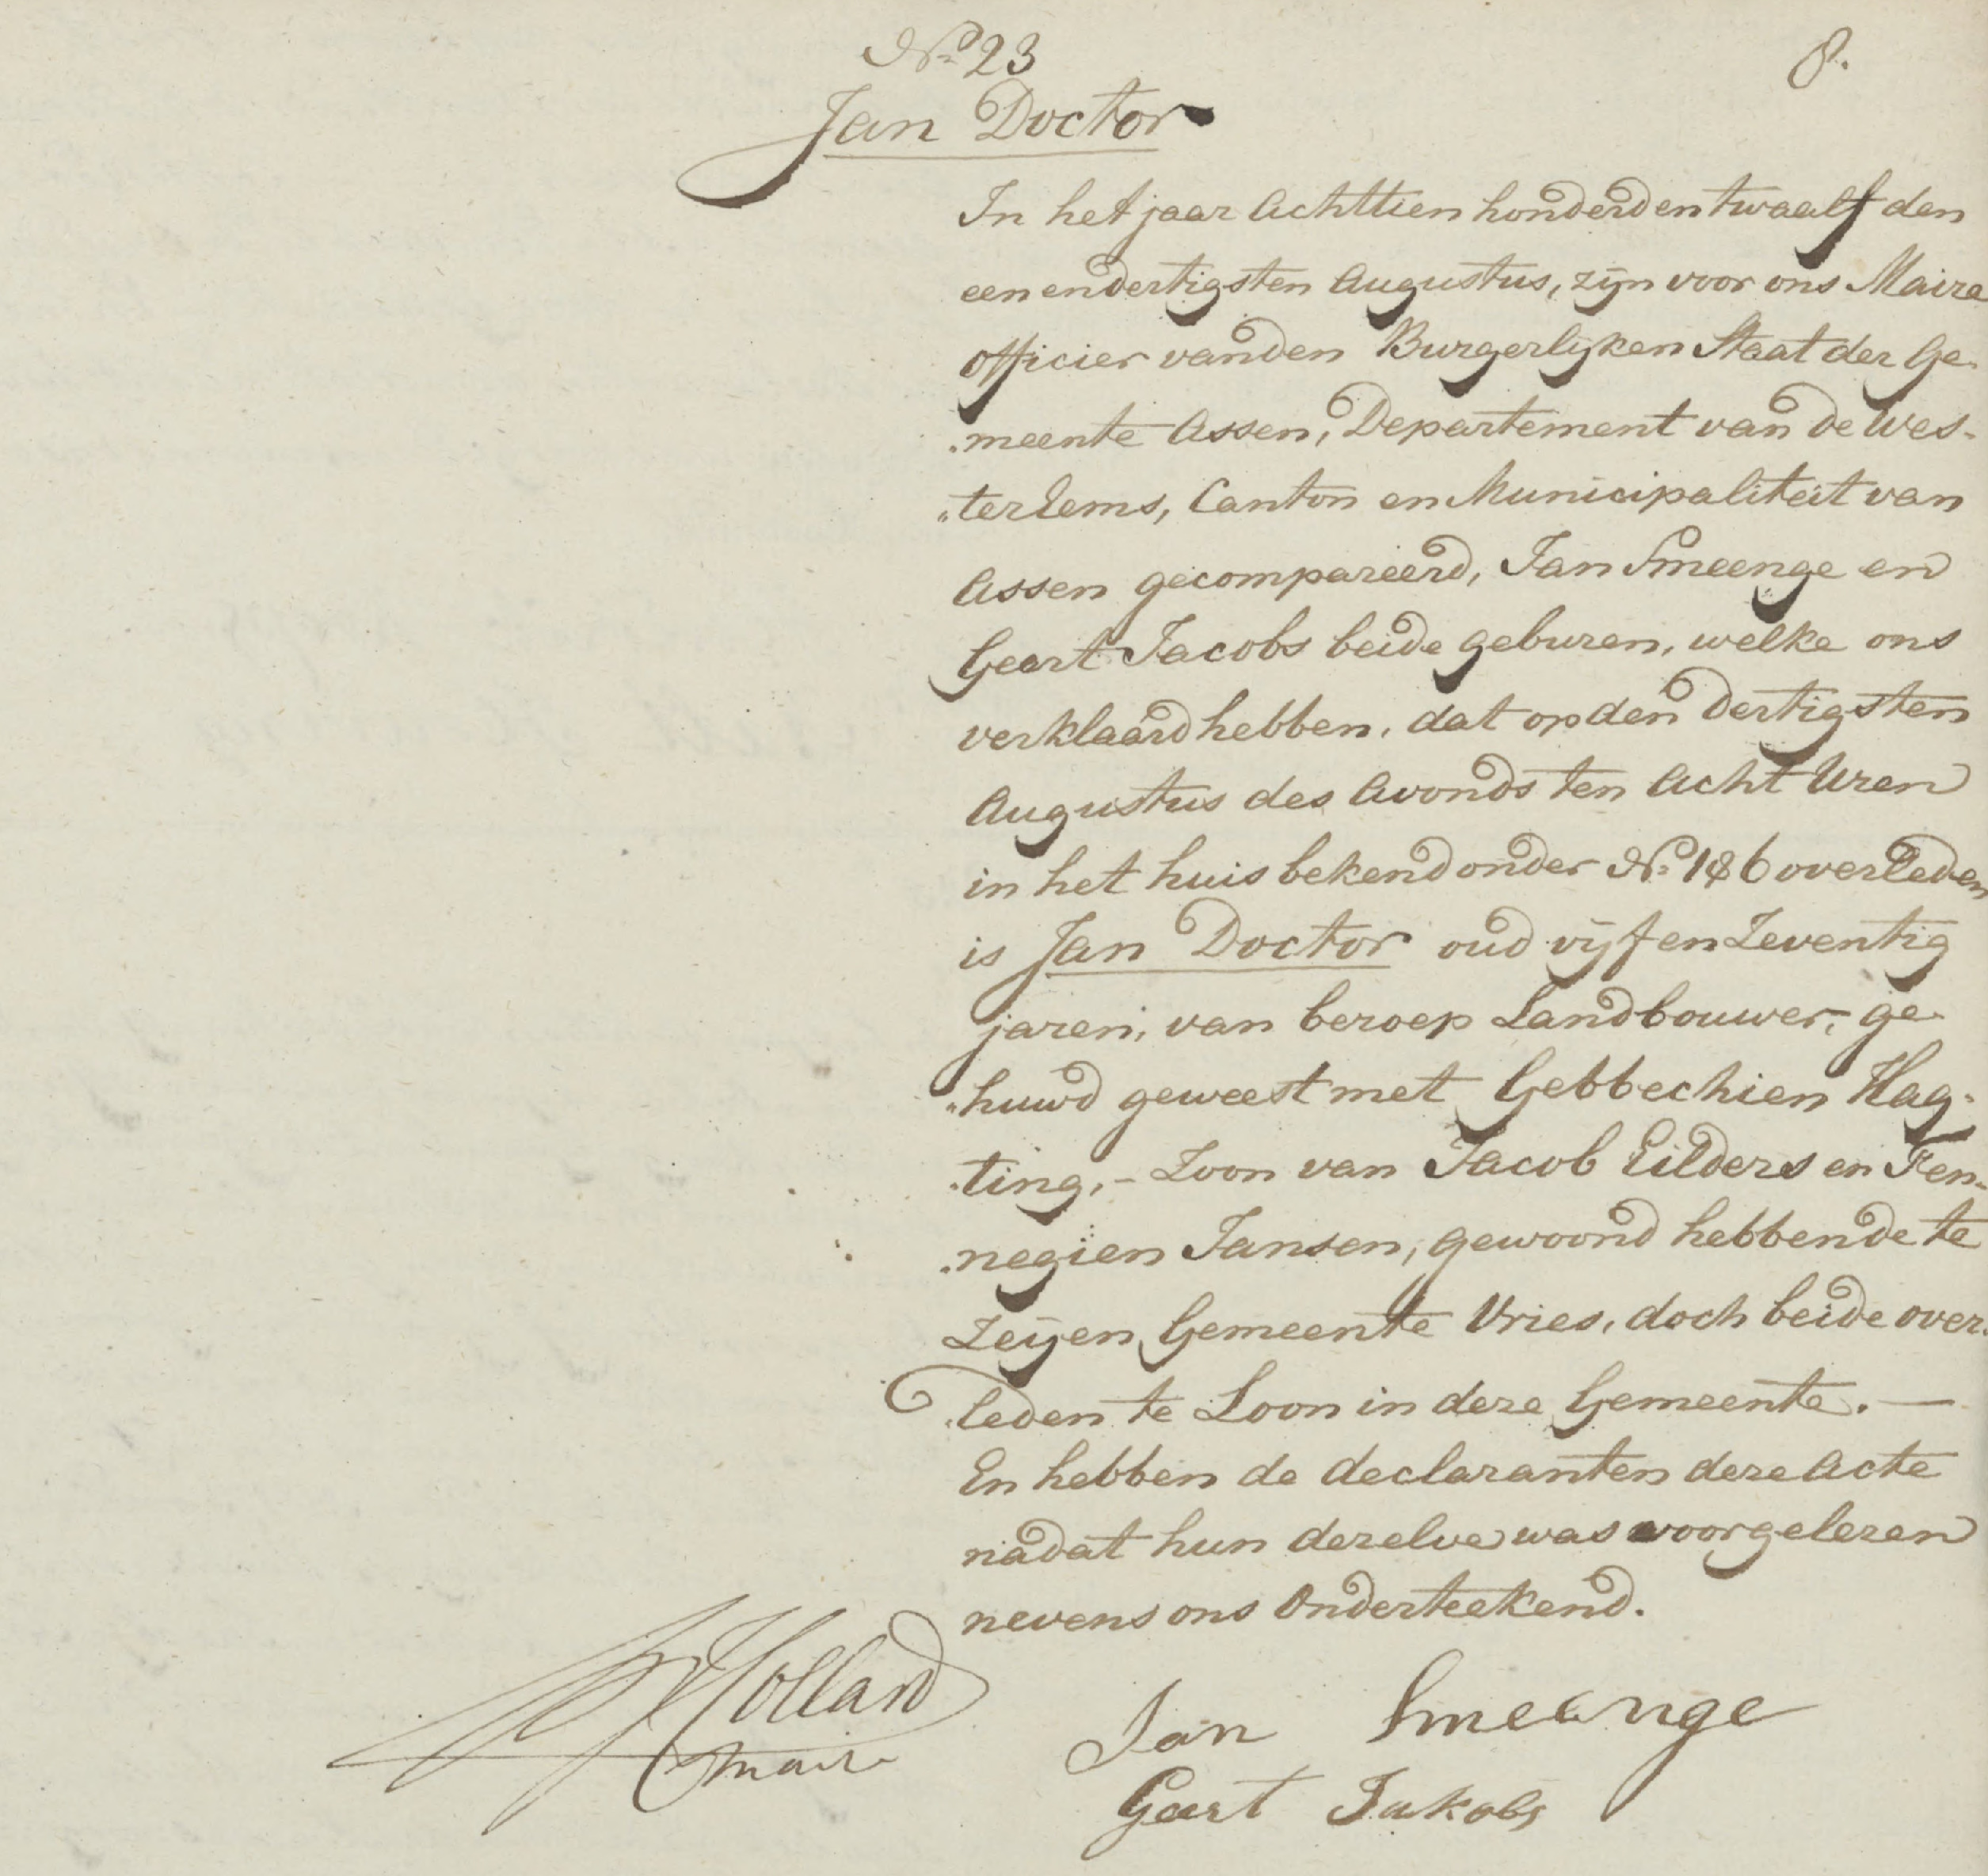 No 23
8.
Jan Doctor
In het jaar Achttien honderd en twaalf den
een en dertigsten Augustus, zijn voor ons Maire
officier van den Burgerlijken Staat der Ge-
"meente Assen, Departement van de Wes-
"ter Eems, Canton en Municipaliteit van
Assen gecompareerd, Jan Smeenge en
Geert Jacobs beide geburen, welke ons
verklaard hebben, dat op den dertigsten
Augustus des Avonds ten Acht Uren
in het huis bekend onder No overleden
is Jan Doctor oud vijf en Zeventig
jaren, van beroep Landbouwer, ge-
"huwd geweest met Gebbechien Hag-
"ting, - Zoon van Jacob Eilders en Fen-
"negien Jansen, gewoond hebbende te
Zeijen Gemeente Vries, doch beide over-
"leden te Loon in deze Gemeente. —
En hebben de declaranten deze Acte
nadat hun dezelve was voorgelezen
nevens ons Onderteekend.
Holland
maire
Jan Smeenge
Geert Jakobs